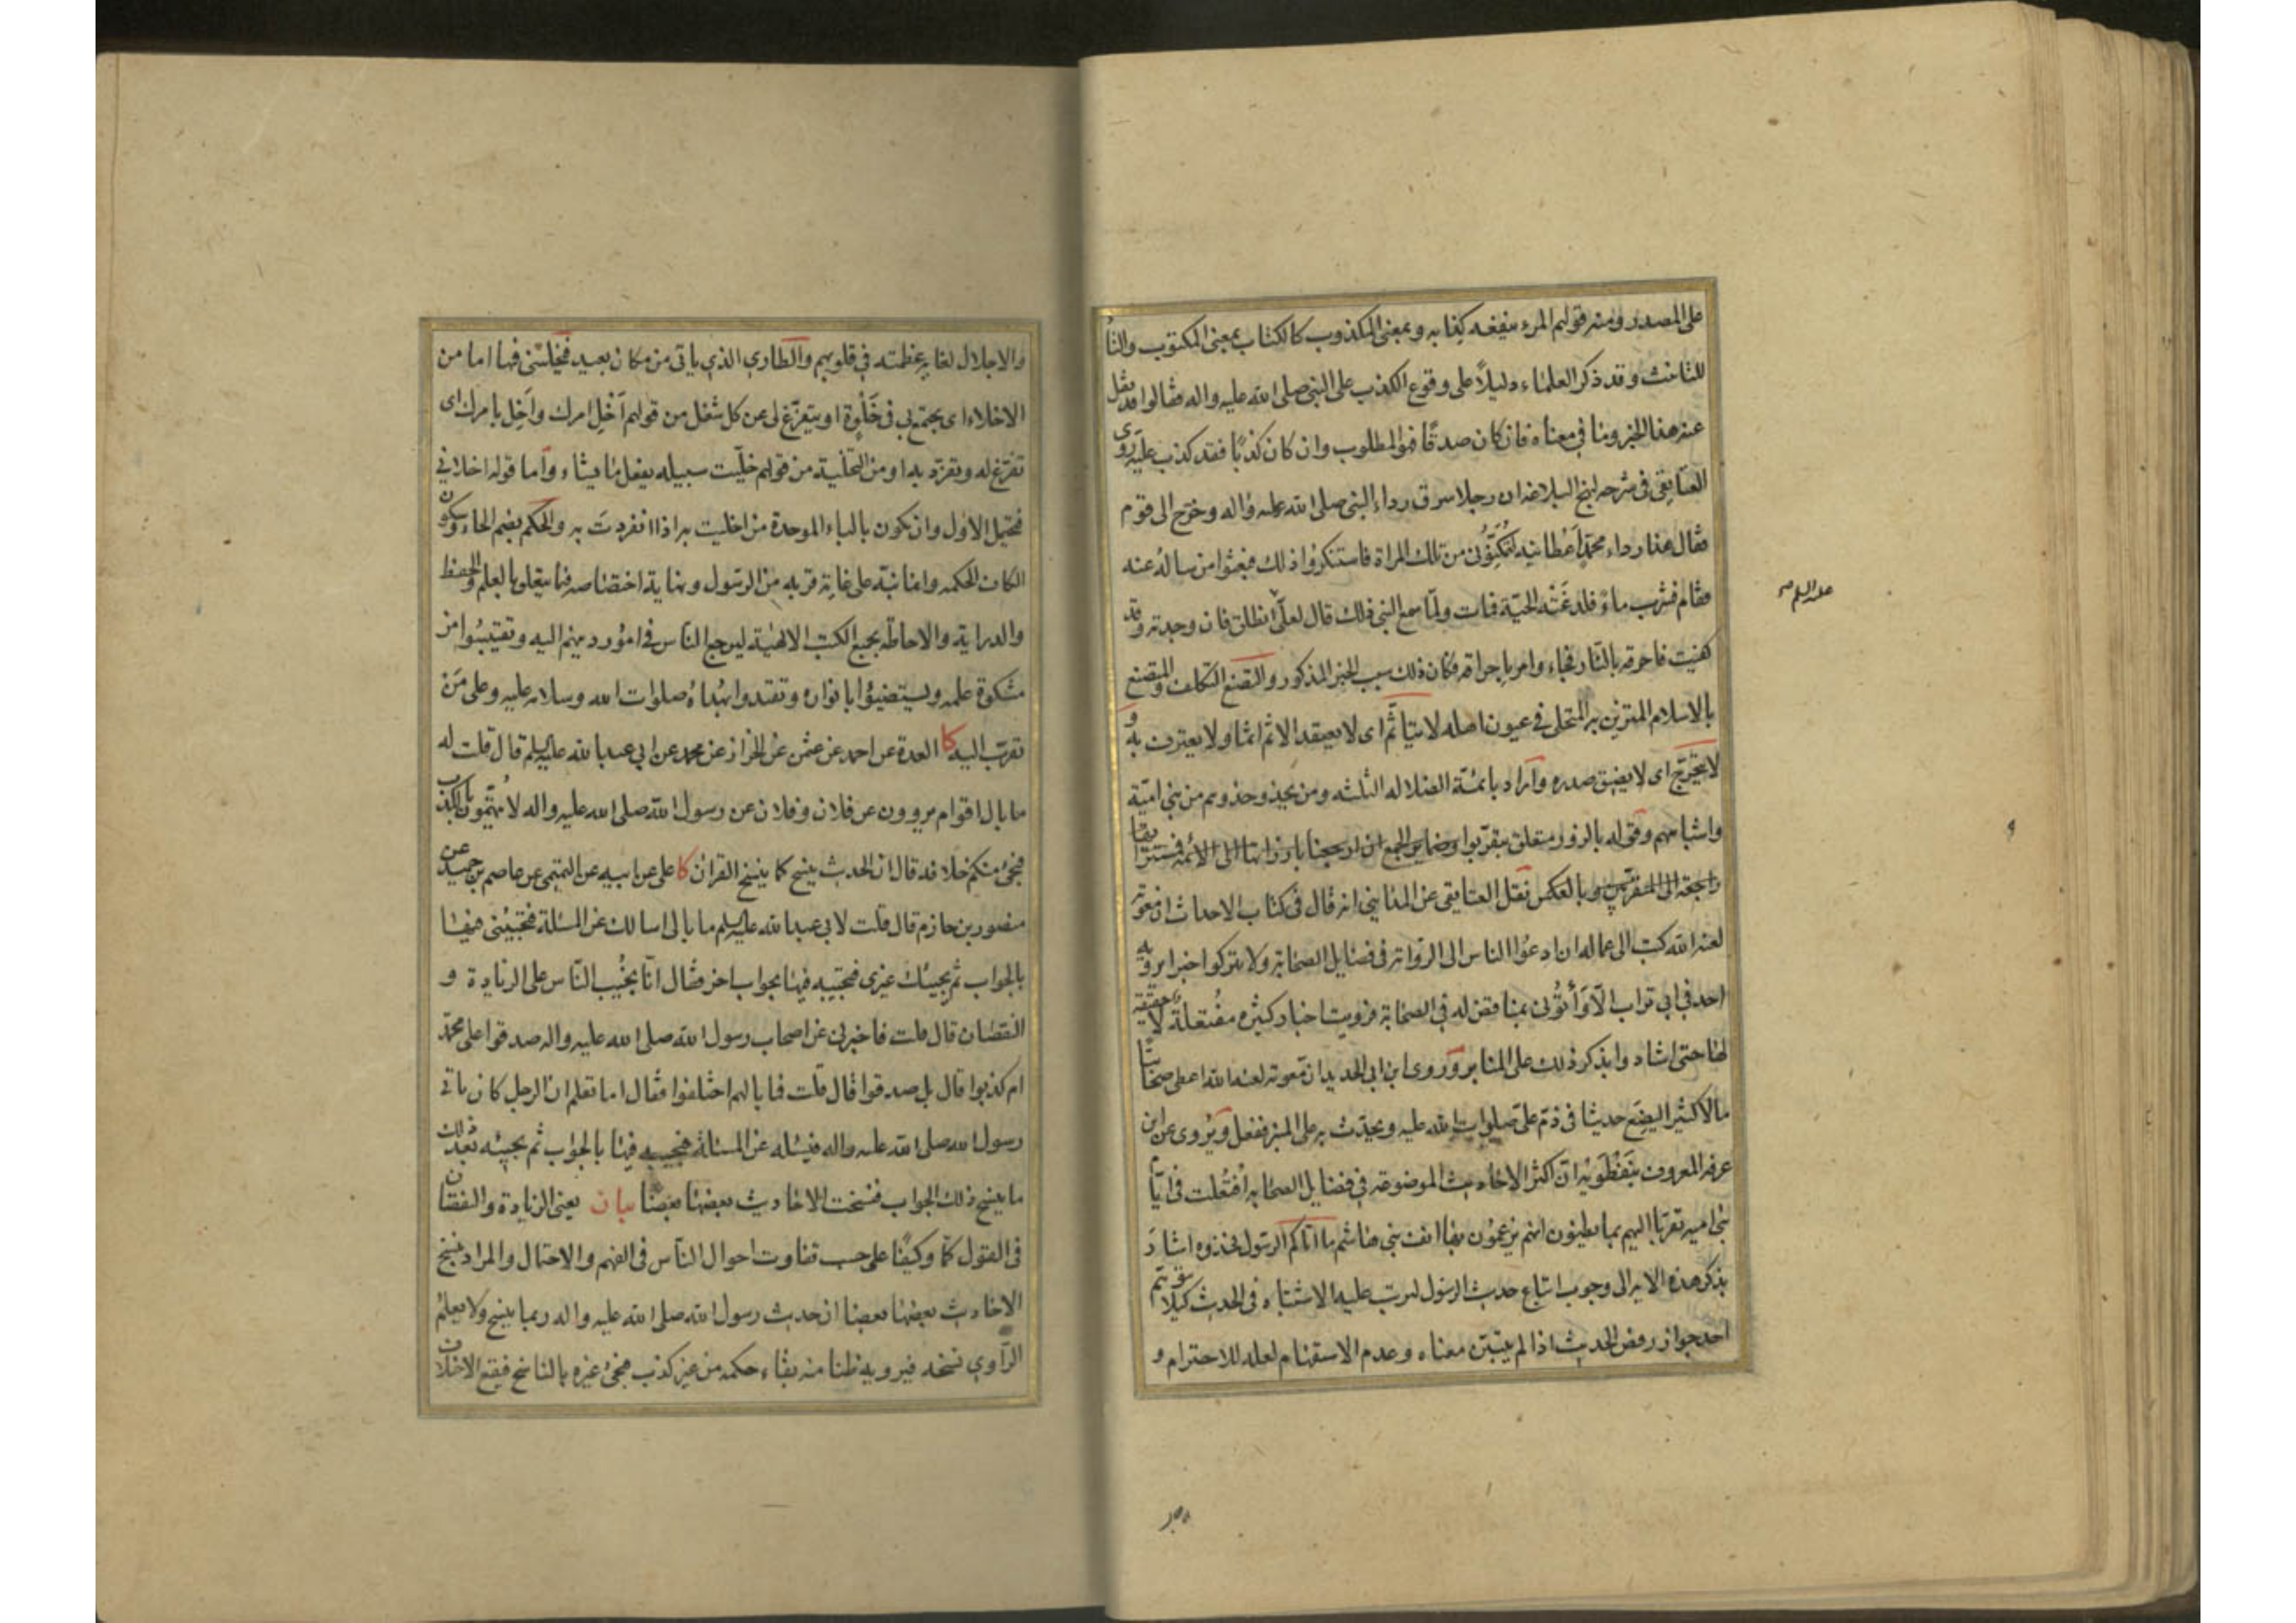 على المصدر ومنه قولهم المرء ينفعه كذابه وبمعنى المكذوب كالكتاب بمعنى المكتوب والتا
للتانيث وقد ذكر العلماء دليلاً على وقوع الكذب على النبي صلى الله عليه واله فقالوا قد نقل
عنه هذا الخبر وما في معناه فان كان صدقًا فهو المطلوب وان كان كذبًا فقد كذب عليه روى
العتايقي في شرحه لنهج البلاغه ان رجلا سرق رداء النبي صلى الله عليه واله وخرج الى قوم
فقال هذا رداء محمد اعطانيه لتمكنوني من تلك المراة فاستنكروا ذلك فبعثوا من ساله عنه
فقام فشرب ماءً فلدغته الحيّة فمات ولمّا سمع النبي ذلك قال لعلي انطلق فان وجدته وقد
كفيت فاحرقه بالنار فجاء وامر باحراقه فكان ذلك سبب الخبر المذكور والتصنع التكلف والمتصنع
بالاسلام المتزين به المتحلى في عيون اهله لا يتأثّم اى لا يعتقد الاثم اثما ولا يعترف به و
لا يتحرّج اى لا يضيق صدره واراد بائمّة الضلاله الثلثه ومن يحذو حذوهم من بني اميّة
واشباههم وقوله بالزور متعلق بتقربوا وضماير الجمع ان
راجعة الى المتقربين وبالعكس نقل العتايقي عن المدايني انه قال في كتاب الاحداث ان معوية
لعنه الله كتب الى عماله ان ادعوا الناس الى الرواية في فضايل الصحابة ولا يتركوا خبرا يرويه
احد في ابي تراب الا وأتوني بمناقض له في الصحابة فرويت اخبار كثيره مفتعلة لا حقيقة
لها حتى اشادوا بذكر ذلك على المنابر وروى ابن ابي الحديد ان معوية لعنه الله اعطى صحابيًّا
مالا كثيرا ليضع حديثا في ذمّ علىّ صلوات الله عليه ويحدّث به على المنبر ففعل ويُروى عن ابن
عرفه المعروف بنفطويه ان اكثر الاحاديث الموضوعة في فضايل الصحابه افتُعلت في ايّام
بني اميه تقربا اليهم بما يظنون انهم يرغمون بها انف بني هاشم ما اتاكم الرسول فخذوه اشار
بذكر هذه الايه الى وجوب اتباع حديث الرسول ليرتب عليه الاشتباه في الحديث كيلا يتوهّم
احد جواز رفض الحديث اذا لم يتبيّن معناه وعدم الاستفهام لعله للاحترام و
والاجلال لغاية عظمته في قلوبهم والطاري الذي ياتي من مكان بعيد فيخلّيني فيها اما من
الاخلاء اى يجتمع بي في خَلْوة او يتفرّغ لي عن كل شغل من قولهم أخْلِ امرك وأخِل بامرك اى
تفرّغ له وتفرّد به او من التخلية من قولهم خلّيت سبيله يفعل ما يشاء وأما قوله اخلاني
فيحتمل الاول وان يكون بالباء الموحدة من اخليت به اذا انفردت به والحكم بضم الحاء وسكون
الكاف الحكمه وانما نبّه على غاية قربه من الرسول ونهاية اختصاصه فيما يتعلق بالعلم والحفظ
والدراية والاحاطة بجميع الكتب الالهيّة ليرجع الناس في امور دينهم اليه ويقتبسوا من
مشكوة علمه ويستضيئوا بانواره ويقتدوا بهداه صلوات الله وسلامه عليه وعلى مَن
تقرّب اليه كا العدة عن احمد عن عثمن عن الخراز عن محمد عن ابي عبد الله عليه السلم قال قلت له
ما بال اقوام يروون عن فلان وفلان عن رسول الله صلى الله عليه واله لا يُتّهمون بالكذب
فيجئ منكم خلافه قال ان الحديث ينسخ كما ينسخ القران كا على عن ابيه عن التميمي عن عاصم بن حميد عن
منصور بن حازم قال قلت لابي عبد الله عليه السلم ما بالى اسالك عن المسئلة فتجيبني فيها
بالجواب ثم يجيئك غيرى فتجيبه فيها بجواب اخر فقال انّا نجيب الناس على الزيادة و
النقصان قال قلت فاخبرني عن اصحاب رسول الله صلى الله عليه واله صدقوا على محمّد
ام كذبوا قال بل صدقوا قال قلت فما بالهم اختلفوا فقال اما تعلم ان الرجل كان ياتى
رسول الله صلى الله عليه واله فيسئله عن المسئلة فيجيبه فيها بالجواب ثم يجيبه بعد ذلك
ما ينسخ ذلك الجواب فنسخت الاحاديث بعضها بعضا بيان يعنى الزيادة والنقصان
في القول كمًّا وكيفًا على حسب تفاوت احوال الناس في الفهم والاحتمال والمراد بنسخ
الاحاديث بعضها بعضا ان حديث رسول الله صلى الله عليه واله ربما ينسخ ولا يعلم
الرّاوي نسخه فيرويه ظنا منه بقاء حكمه من غير كذب فيجئ غيره بالناسخ فيقع الاختلاف